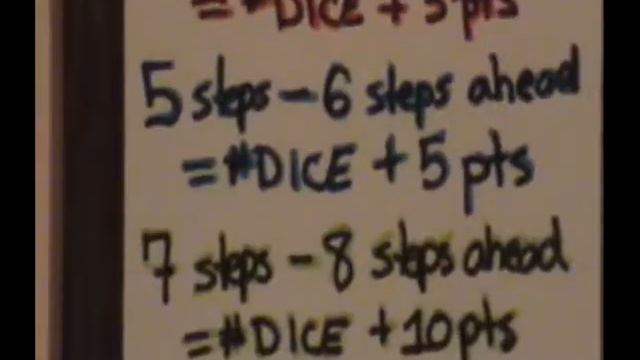 = #DICE + 3 pts
5 steps - 6 steps ahead
= #DICE + 5 pts
7 steps - 8 steps ahead
= #DICE + 10 pts